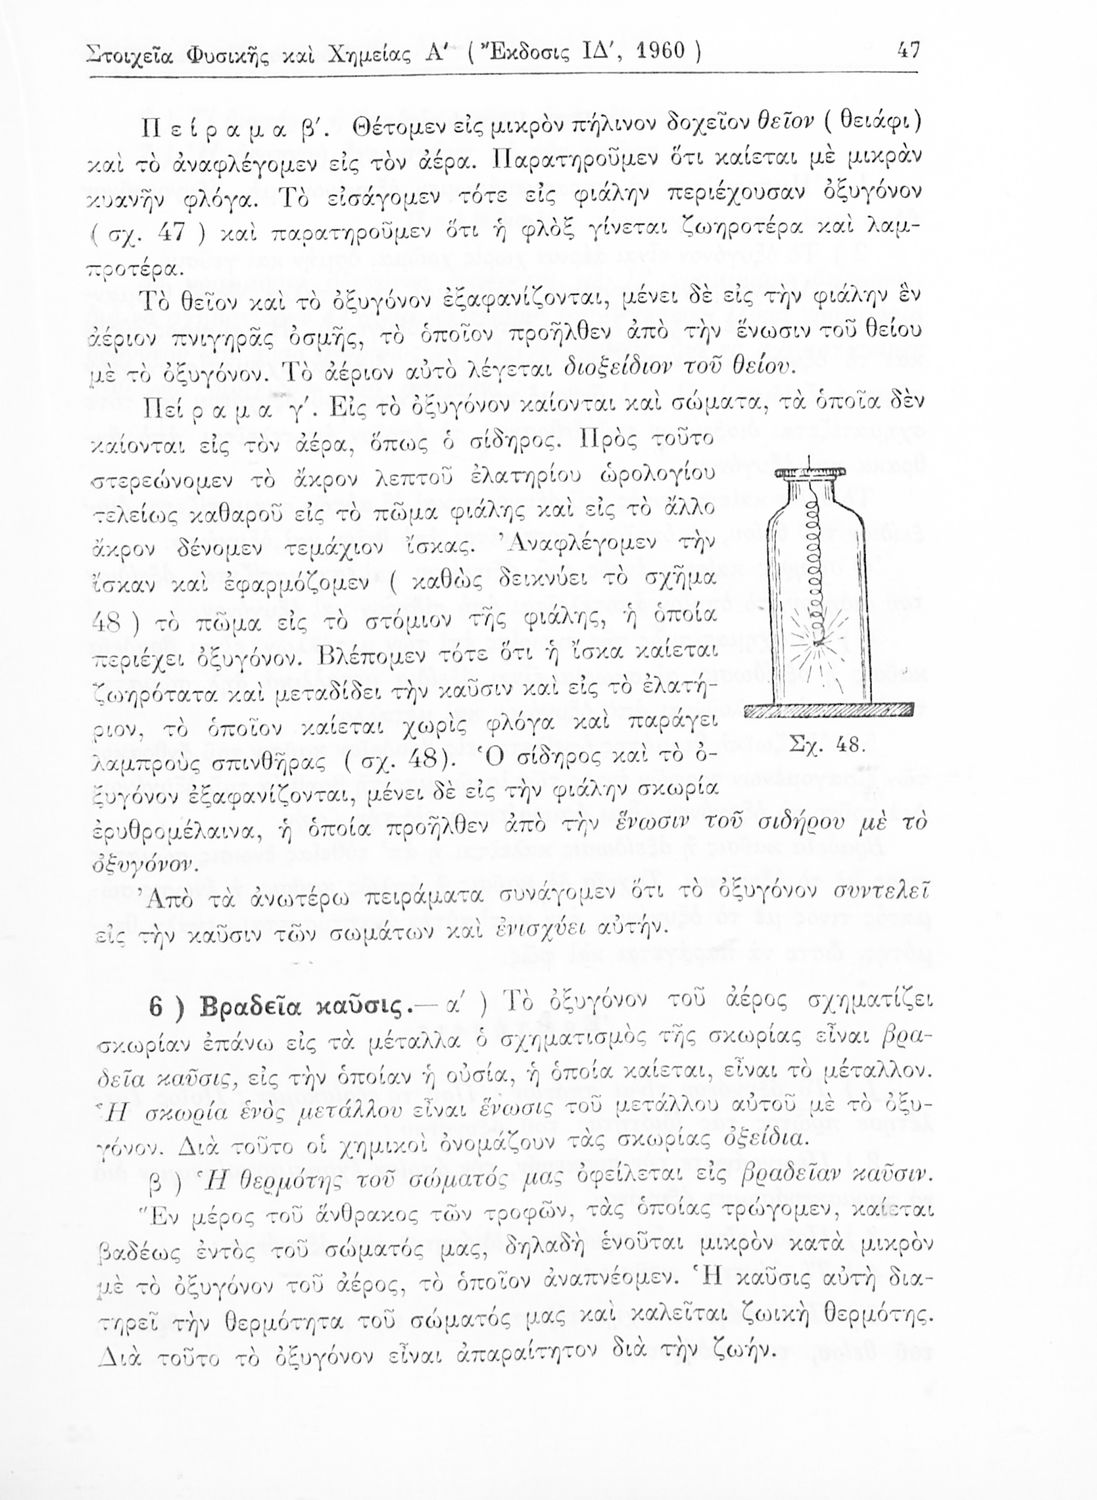 Στοιχεῖα Φυσικῆς καὶ Χημείας Α' ( Ἔκδοσις ΙΔ', 1960 ) 47
Πείραμα β'. Θέτομεν εἰς μικρὸν πήλινον δοχεῖον θεῖον ( θειάφι)
καὶ τὸ ἀναφλέγομεν εἰς τὸν ἀέρα. Παρατηροῦμεν ὅτι καίεται μὲ μικρὰν
κυανῆν φλόγα. Τὸ εἰσάγομεν τότε εἰς φιάλην περιέχουσαν ὀξυγόνον
( σχ. 47 ) καὶ παρατηροῦμεν ὅτι ἡ φλὸξ γίνεται ζωηροτέρα καὶ λαμ-
προτέρα.
Τὸ θεῖον καὶ τὸ ὀξυγόνον ἐξαφανίζονται, μένει δὲ εἰς τὴν φιάλην ἓν
ἀέριον πνιγηρᾶς ὀσμῆς, τὸ ὁποῖον προῆλθεν ἀπὸ τὴν ἕνωσιν τοῦ θείου
μὲ τὸ ὀξυγόνον. Τὸ ἀέριον αὐτὸ λέγεται διοξείδιον τοῦ θείου.
Πείραμα γ'. Εἰς τὸ ὀξυγόνον καίονται καὶ σώματα, τὰ ὁποῖα δὲν
καίονται εἰς τὸν ἀέρα, ὅπως ὁ σίδηρος. Πρὸς τοῦτο
στερεώνομεν τὸ ἄκρον λεπτοῦ ἐλατηρίου ὡρολογίου
τελείως καθαροῦ εἰς τὸ πῶμα φιάλης καὶ εἰς τὸ ἄλλο
ἄκρον δένομεν τεμάχιον ἴσκας. Ἀναφλέγομεν τὴν
ἴσκαν καὶ ἐφαρμόζομεν ( καθὼς δεικνύει τὸ σχῆμα
48 ) τὸ πῶμα εἰς τὸ στόμιον τῆς φιάλης, ἡ ὁποία
περιέχει ὀξυγόνον. Βλέπομεν τότε ὅτι ἡ ἴσκα καίεται
ζωηρότατα καὶ μεταδίδει τὴν καῦσιν καὶ εἰς τὸ ἐλατή-
ριον, τὸ ὁποῖον καίεται χωρὶς φλόγα καὶ παράγει
λαμπροὺς σπινθῆρας ( σχ. 48). Ὁ σίδηρος καὶ τὸ ὀ-
ξυγόνον ἐξαφανίζονται, μένει δὲ εἰς τὴν φιάλην σκωρία
ἐρυθρομέλαινα, ἡ ὁποία προῆλθεν ἀπὸ τὴν ἕνωσιν τοῦ σιδήρου μὲ τὸ
ὀξυγόνον.
Σχ. 48.
Ἀπὸ τὰ ἀνωτέρω πειράματα συνάγομεν ὅτι τὸ ὀξυγόνον συντελεῖ
εἰς τὴν καῦσιν τῶν σωμάτων καὶ ἐνισχύει αὐτήν.
6 ) Βραδεῖα καῦσις.— α' ) Τὸ ὀξυγόνον τοῦ ἀέρος σχηματίζει
σκωρίαν ἐπάνω εἰς τὰ μέταλλα ὁ σχηματισμὸς τῆς σκωρίας εἶναι βρα-
δεῖα καῦσις, εἰς τὴν ὁποίαν ἡ οὐσία, ἡ ὁποία καίεται, εἶναι τὸ μέταλλον.
Ἡ σκωρία ἑνὸς μετάλλου εἶναι ἕνωσις τοῦ μετάλλου αὐτοῦ μὲ τὸ ὀξυ-
γόνον. Διὰ τοῦτο οἱ χημικοὶ ὀνομάζουν τὰς σκωρίας ὀξείδια.
β ) Ἡ θερμότης τοῦ σώματός μας ὀφείλεται εἰς βραδεῖαν καῦσιν.
Ἓν μέρος τοῦ ἄνθρακος τῶν τροφῶν, τὰς ὁποίας τρώγομεν, καίεται
βαδέως ἐντὸς τοῦ σώματός μας, δηλαδὴ ἑνοῦται μικρὸν κατὰ μικρὸν
μὲ τὸ ὀξυγόνον τοῦ ἀέρος, τὸ ὁποῖον ἀναπνέομεν. Ἡ καῦσις αὐτὴ δια-
τηρεῖ τὴν θερμότητα τοῦ σώματός μας καὶ καλεῖται ζωικὴ θερμότης.
Διὰ τοῦτο τὸ ὀξυγόνον εἶναι ἀπαραίτητον διὰ τὴν ζωήν.